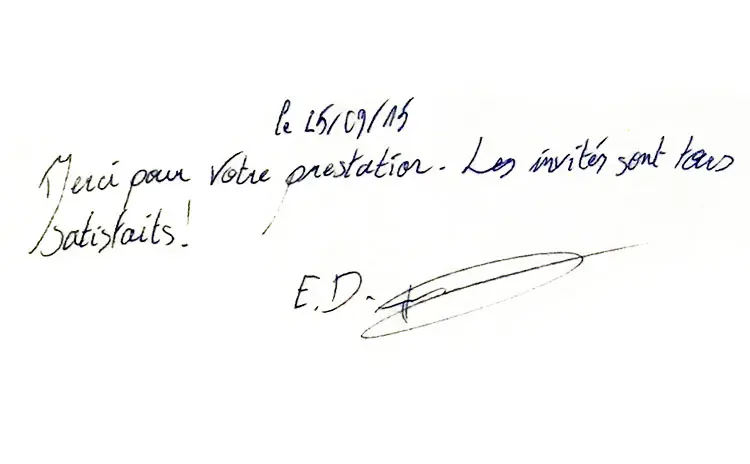 le 25/09/15
Merci pour votre prestation. Les invités sont tous
satisfaits!
E.D.